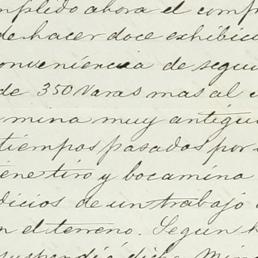 mplido ahora el comp
de hacer doce exhibic
conveniencia de segui
de 350 Varas mas al
mina muy antigu
tiempos pasados por
iene tiro y bocamina
dicios de un trabajo
n el terreno. Segun
suspendió dicha Mina